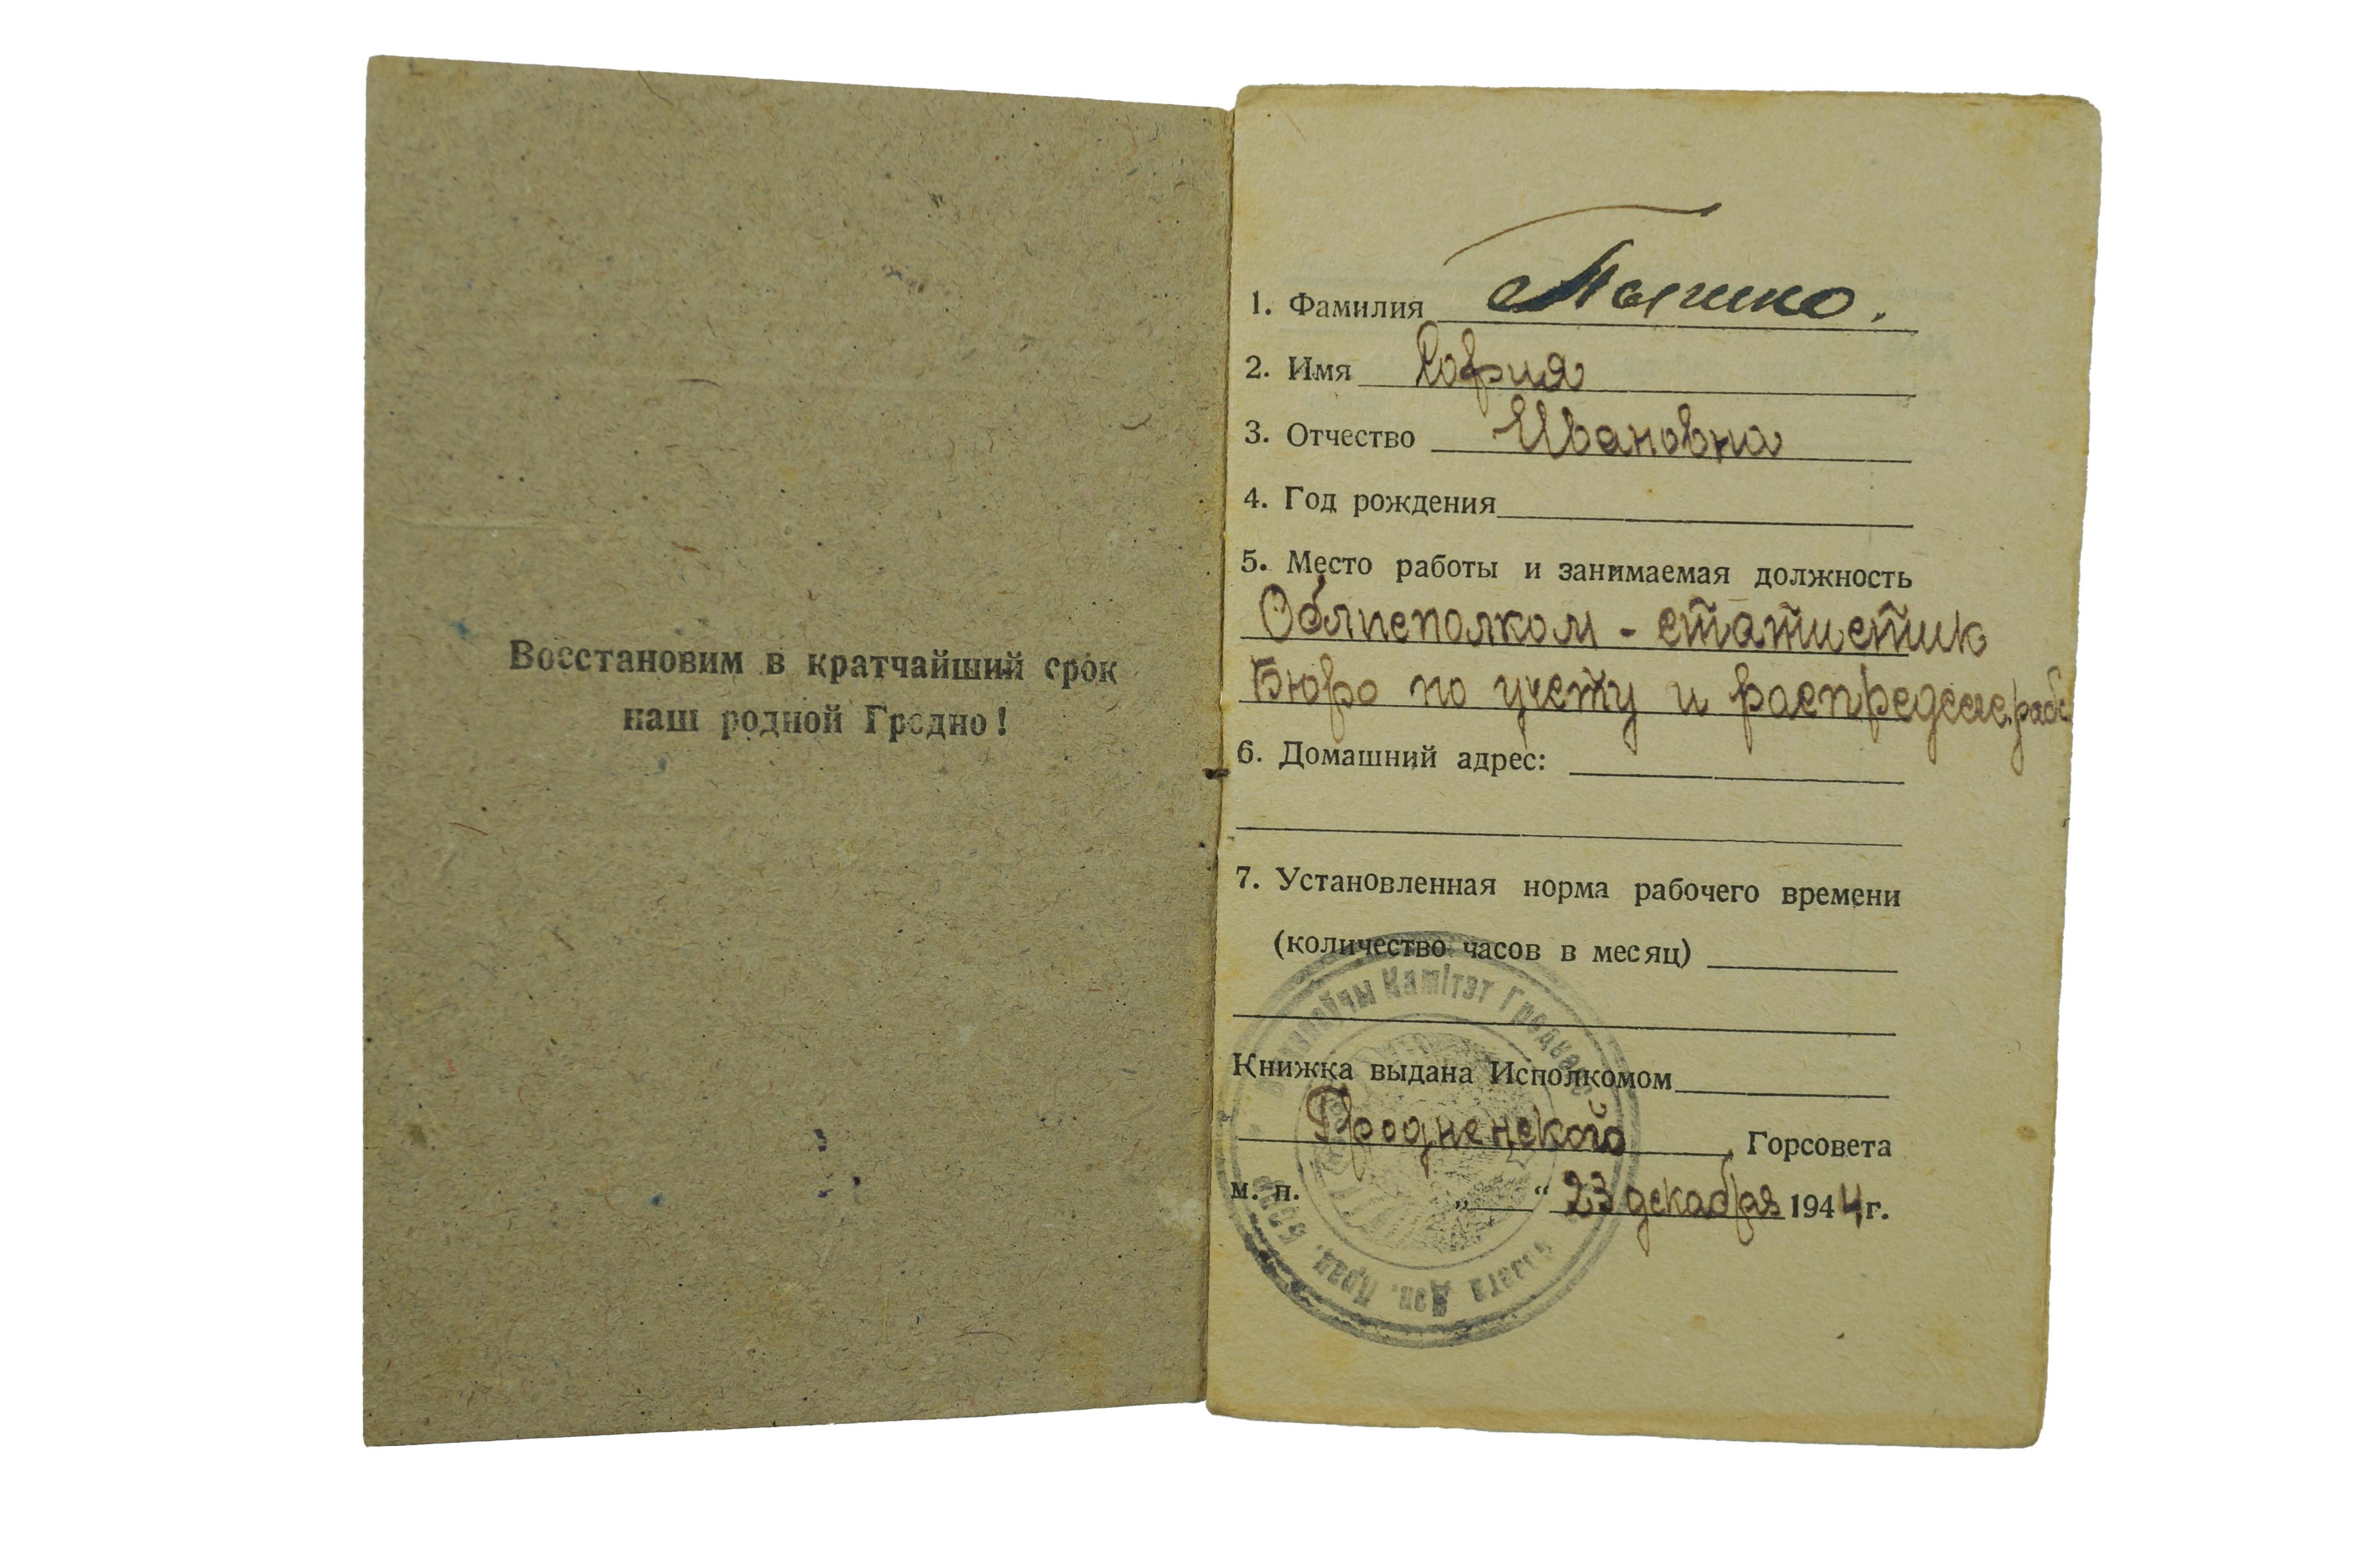 Восстановим в кратчайший срок
наш родной Гродно!
1. Фамилия
2. Имя София
3. Отчество Ивановна
4. Год рождения
5. Место работы и занимаемая должность
Облисполком - статистик
Бюро по учету и распределе. раб
6. Домашний адрес:
7. Установленная норма рабочего времени
(количество часов в месяц)
Книжка выдана Исполкомом
Гродненского Горсовета
м. п. „ “ 23 декабря 1944 г.
Камітэт
Дэп. Прац.